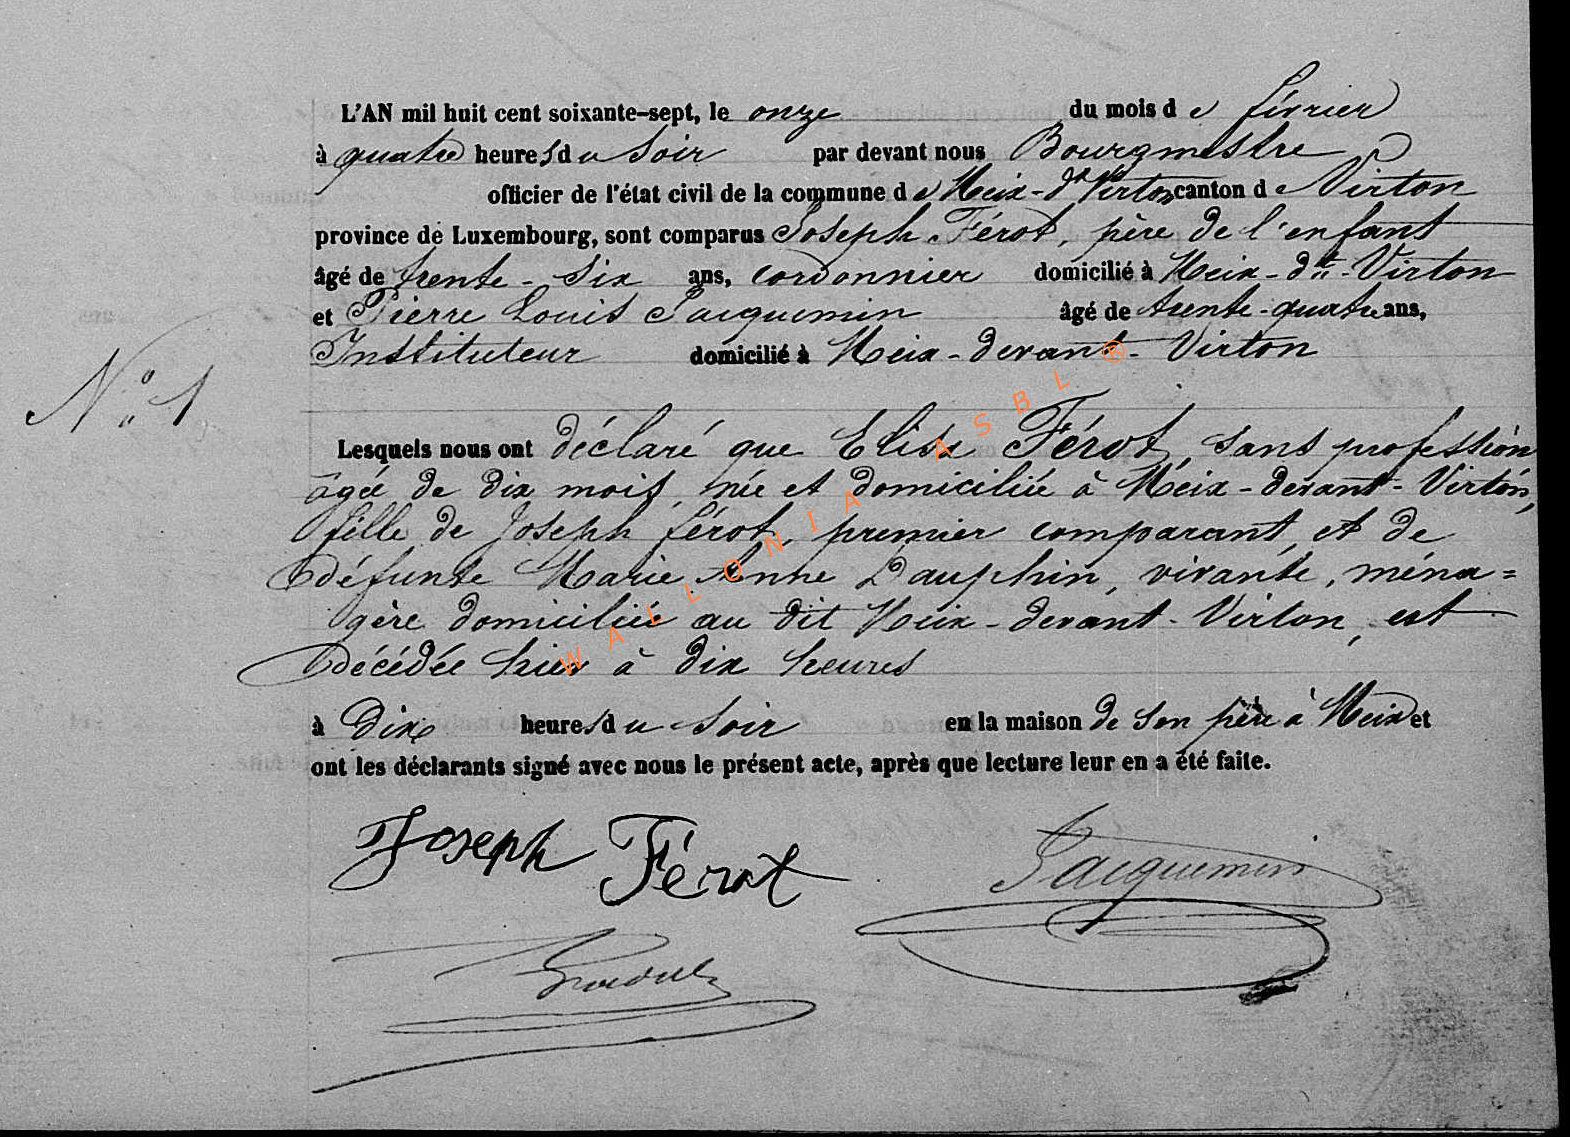 L'AN mil huit cent soixante-sept, le onze du mois de février
à quatre heures du Soir par devant nous Bourgmestre
officier de l'état civil de la commune de Meix-dt Virton canton de Virton
province de Luxembourg, sont comparus Joseph Férot, père de l'enfant
âgé de trente-six ans, cordonnier domicilié à Meix-dt-Virton
et Pierre Louis Jacquemin âgé de trente-quatre ans,
Instituteur domicilié à Meix-devant-Virton
N° 1
Lesquels nous ont déclaré que Elisa Férot, sans profession
âgée de dix mois, née et domiciliée à Meix-devant-Virton,
fille de Joseph férot, premier comparant, et de
défunte Marie Anne Dauphin, vivante, ména=
gère domiciliée au dit Meix-devant-Virton, est
décédée hier à dix heures
à Dix heures du Soir en la maison de son père à Meix et
ont les déclarants signé avec nous le présent acte, après que lecture leur en a été faite.
Joseph Férot Jacquemin
WALLONIA ASBL ®